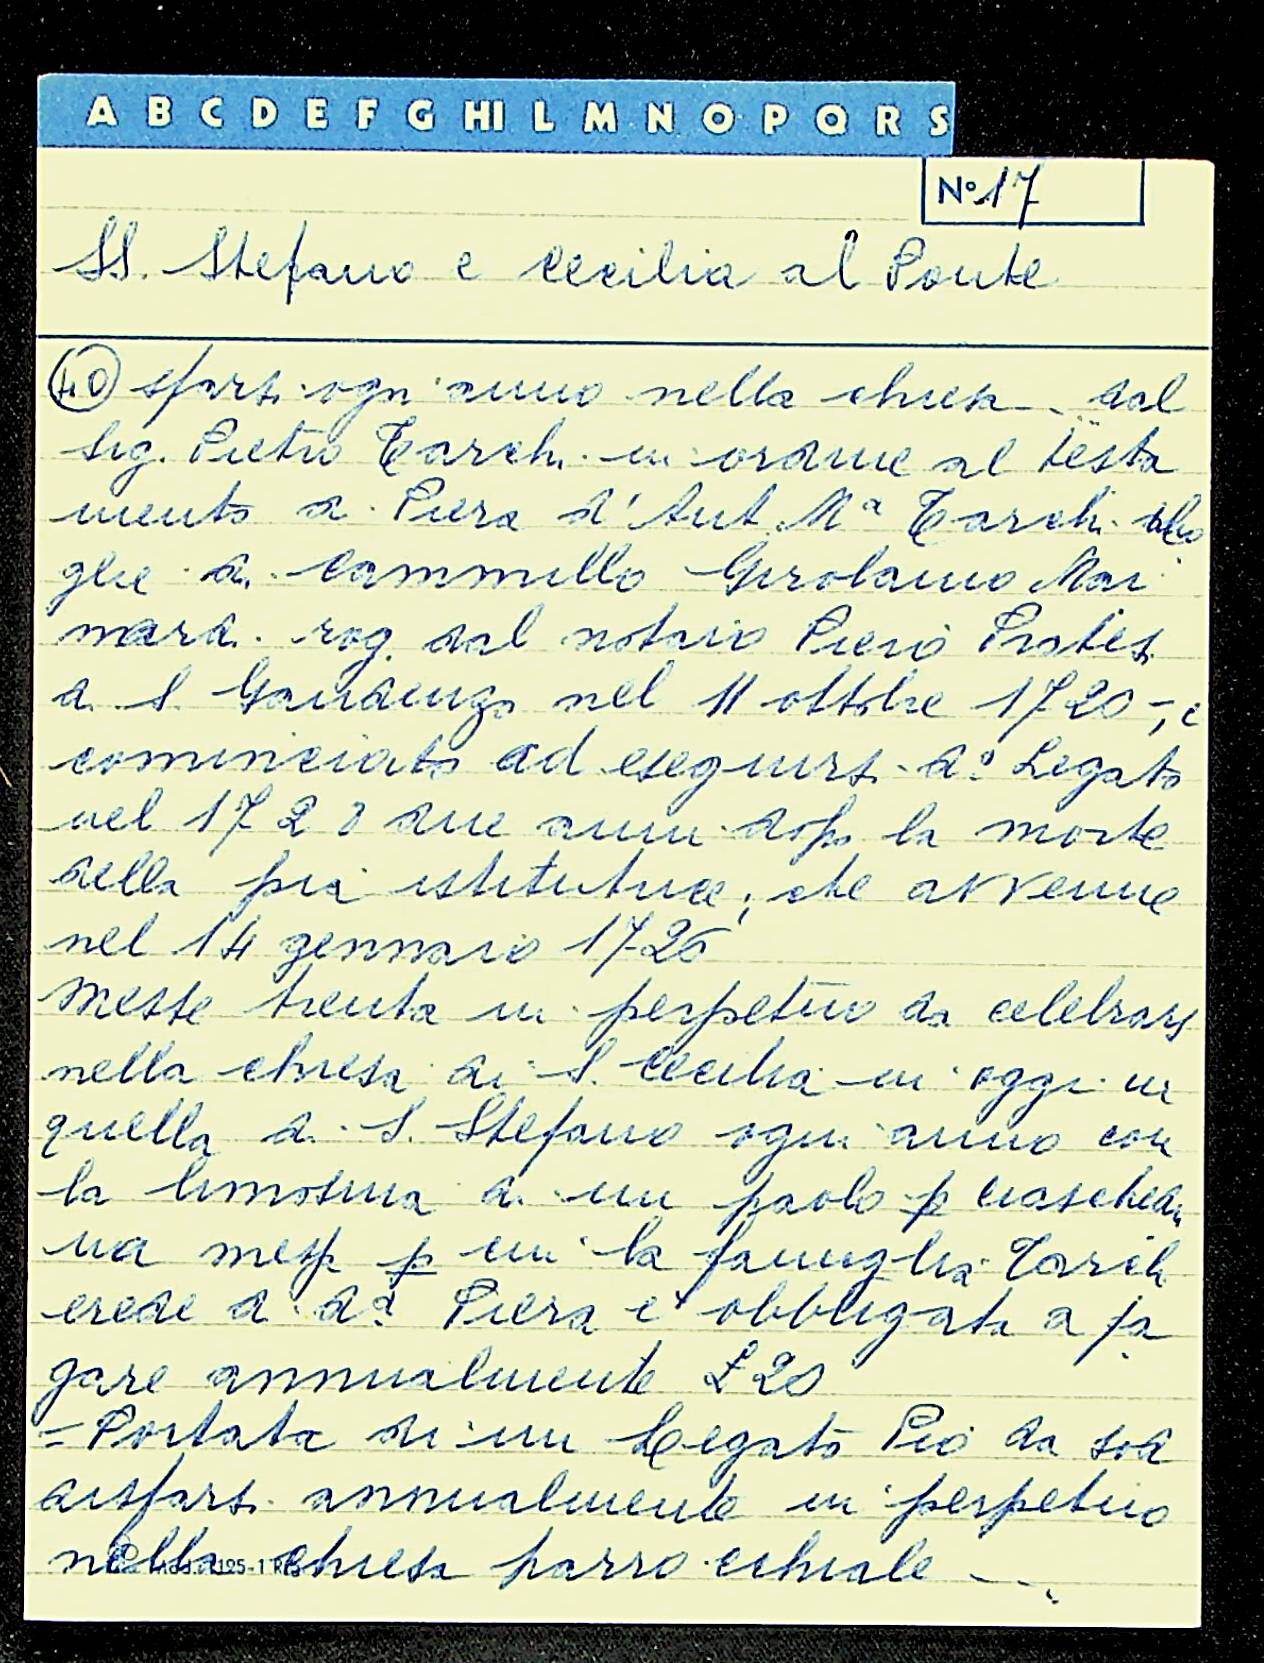 A B C D E F G HI L M N O P Q R S
N° 17
SS. Stefano e Cecilia al Ponte
40 sfarsi ogni anno nella chiesa - dal
sig. Pietro Tarchi in ordine al testa
mento di Piera d'Ant. Mª Tarchi Mo
glie di Cammillo Girolamo Mai
nardi rog. dal notaio Piero
di S. Gaudenzo nel 11 ottobre 1720 -, e
cominciato ad eseguirsi dº Legato
nel 1728 due anni dopo la morte
della pia istitutrice; che avvenne
nel 14 gennaio 1726
Messe trenta in perpetuo da celebrarsi
nella chiesa di S. Cecilia in oggi in
quella di S. Stefano ogni anno con
la limosina di un paolo p ciaschedu
na messa p cui la famiglia Tarchi
erede di dª Piera e' obbligata a pa
gare annualmente £ 20
= Portata di un Legato Pio da sod
disfarsi annualmente in perpetuo
nella chiesa parrochiale -